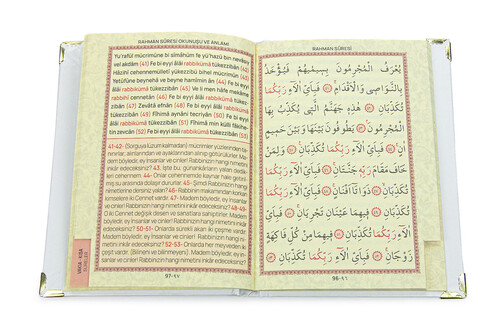 RAHMAN SÛRESİ OKUNUŞU VE ANLAMI
Yu'raful mücrimûne bi simâhüm fe yü'hazü bin nevâsıy
vel akdâm (41) Fe bi eyyi âlâi rabbikümâ tükezzibân (42)
Hâzihî cehennemülletî yükezzibü bihel mücrimûn (43)
Yetûfûne beynehâ ve beyne hamîmin ân (44) Fe bi eyyi
âlâi rabbikümâ tükezzibân (45) Ve li men hâfe mekâme
rabbihî cennetân (46) Fe bi eyyi âlâi rabbikümâ tükezzi-
bân (47) Zevâtâ efnân (48) Fe bi eyyi âlâi rabbikümâ
tükezzibân (49) Fîhimâ aynâni tecriyân (50) Fe bi eyyi
âlâi rabbikümâ tükezzibân (51) Fîhimâ min külli fâkihe-
tin zevcân (52) Fe bi eyyi âlâi rabbikümâ tükezzibân (53)
41-42- (Sorguya lüzum kalmadan) mücrimler yüzlerinden ta-
nınırlar, alınlarından ve ayaklarından alınıp götürülürler. Ma-
dem böyledir, ey insanlar ve cinler! Rabbinizin hangi nimetini
inkâr edeceksiniz? 43. İşte bu, günahkârların yalan dedik-
leri cehennem. 44- Onlar cehennemde kaynar hale getiril-
miş su arasında dolaşır dururlar. 45- Şimdi Rabbinizin hangi
nimetlerine dersiniz yalan? 46- Rabbinin makamından korkan
kimselere iki Cennet vardır. 47- Madem böyledir, ey insanlar
ve cinler! Rabbinizin hangi nimetini inkâr edeceksiniz? 48-49-
O iki Cennet değişik desen ve sanatlara sahiptirler. Madem
böyledir, ey insanlar ve cinler! Rabbinizin hangi nimetini inkâr
edeceksiniz? 50-51- Onlarda sürekli akan iki çeşme vardır.
Madem böyledir, ey insanlar ve cinler! Rabbinizin hangi ni-
metini inkâr edeceksiniz? 52-53- Onlarda her meyveden iki
çeşit vardır. (Bilinen ve bilinmeyen). Madem böyledir, ey in-
sanlar ve cinler! Rabbinizin hangi nimetini inkâr edeceksiniz?
97-٤٧
RAHMAN SÛRESİ
يُعْرَفُ الْمُجْرِمُونَ بِسِيمٰيهُمْ فَيُؤْخَذُ
بِالنَّوَاصِي وَالْاَقْدَامِ ﴿٤١﴾ فَبِاَيِّ اٰلَٓاءِ رَبِّكُمَا
تُكَذِّبَانِ ﴿٤٢﴾ هٰذِهِ جَهَنَّمُ الَّتِي يُكَذِّبُ بِهَا
الْمُجْرِمُونَ ﴿٤٣﴾ يَطُوفُونَ بَيْنَهَا وَبَيْنَ حَمِيمٍ
اٰنٍ ﴿٤٤﴾ فَبِاَيِّ اٰلَٓاءِ رَبِّكُمَا تُكَذِّبَانِ ﴿٤٥﴾ وَلِمَنْ
خَافَ مَقَامَ رَبِّهِ جَنَّتَانِ ﴿٤٦﴾ فَبِاَيِّ اٰلَٓاءِ رَبِّكُمَا
تُكَذِّبَانِ ﴿٤٧﴾ ذَوَاتَٓا اَفْنَانٍ ﴿٤٨﴾ فَبِاَيِّ اٰلَٓاءِ رَبِّكُمَا
تُكَذِّبَانِ ﴿٤٩﴾ فِيهِمَا عَيْنَانِ تَجْرِيَانِ ﴿٥٠﴾ فَبِاَيِّ
اٰلَٓاءِ رَبِّكُمَا تُكَذِّبَانِ ﴿٥١﴾ فِيهِمَا مِنْ كُلِّ فَاكِهَةٍ
زَوْجَانِ ﴿٥٢﴾ فَبِاَيِّ اٰلَٓاءِ رَبِّكُمَا تُكَذِّبَانِ